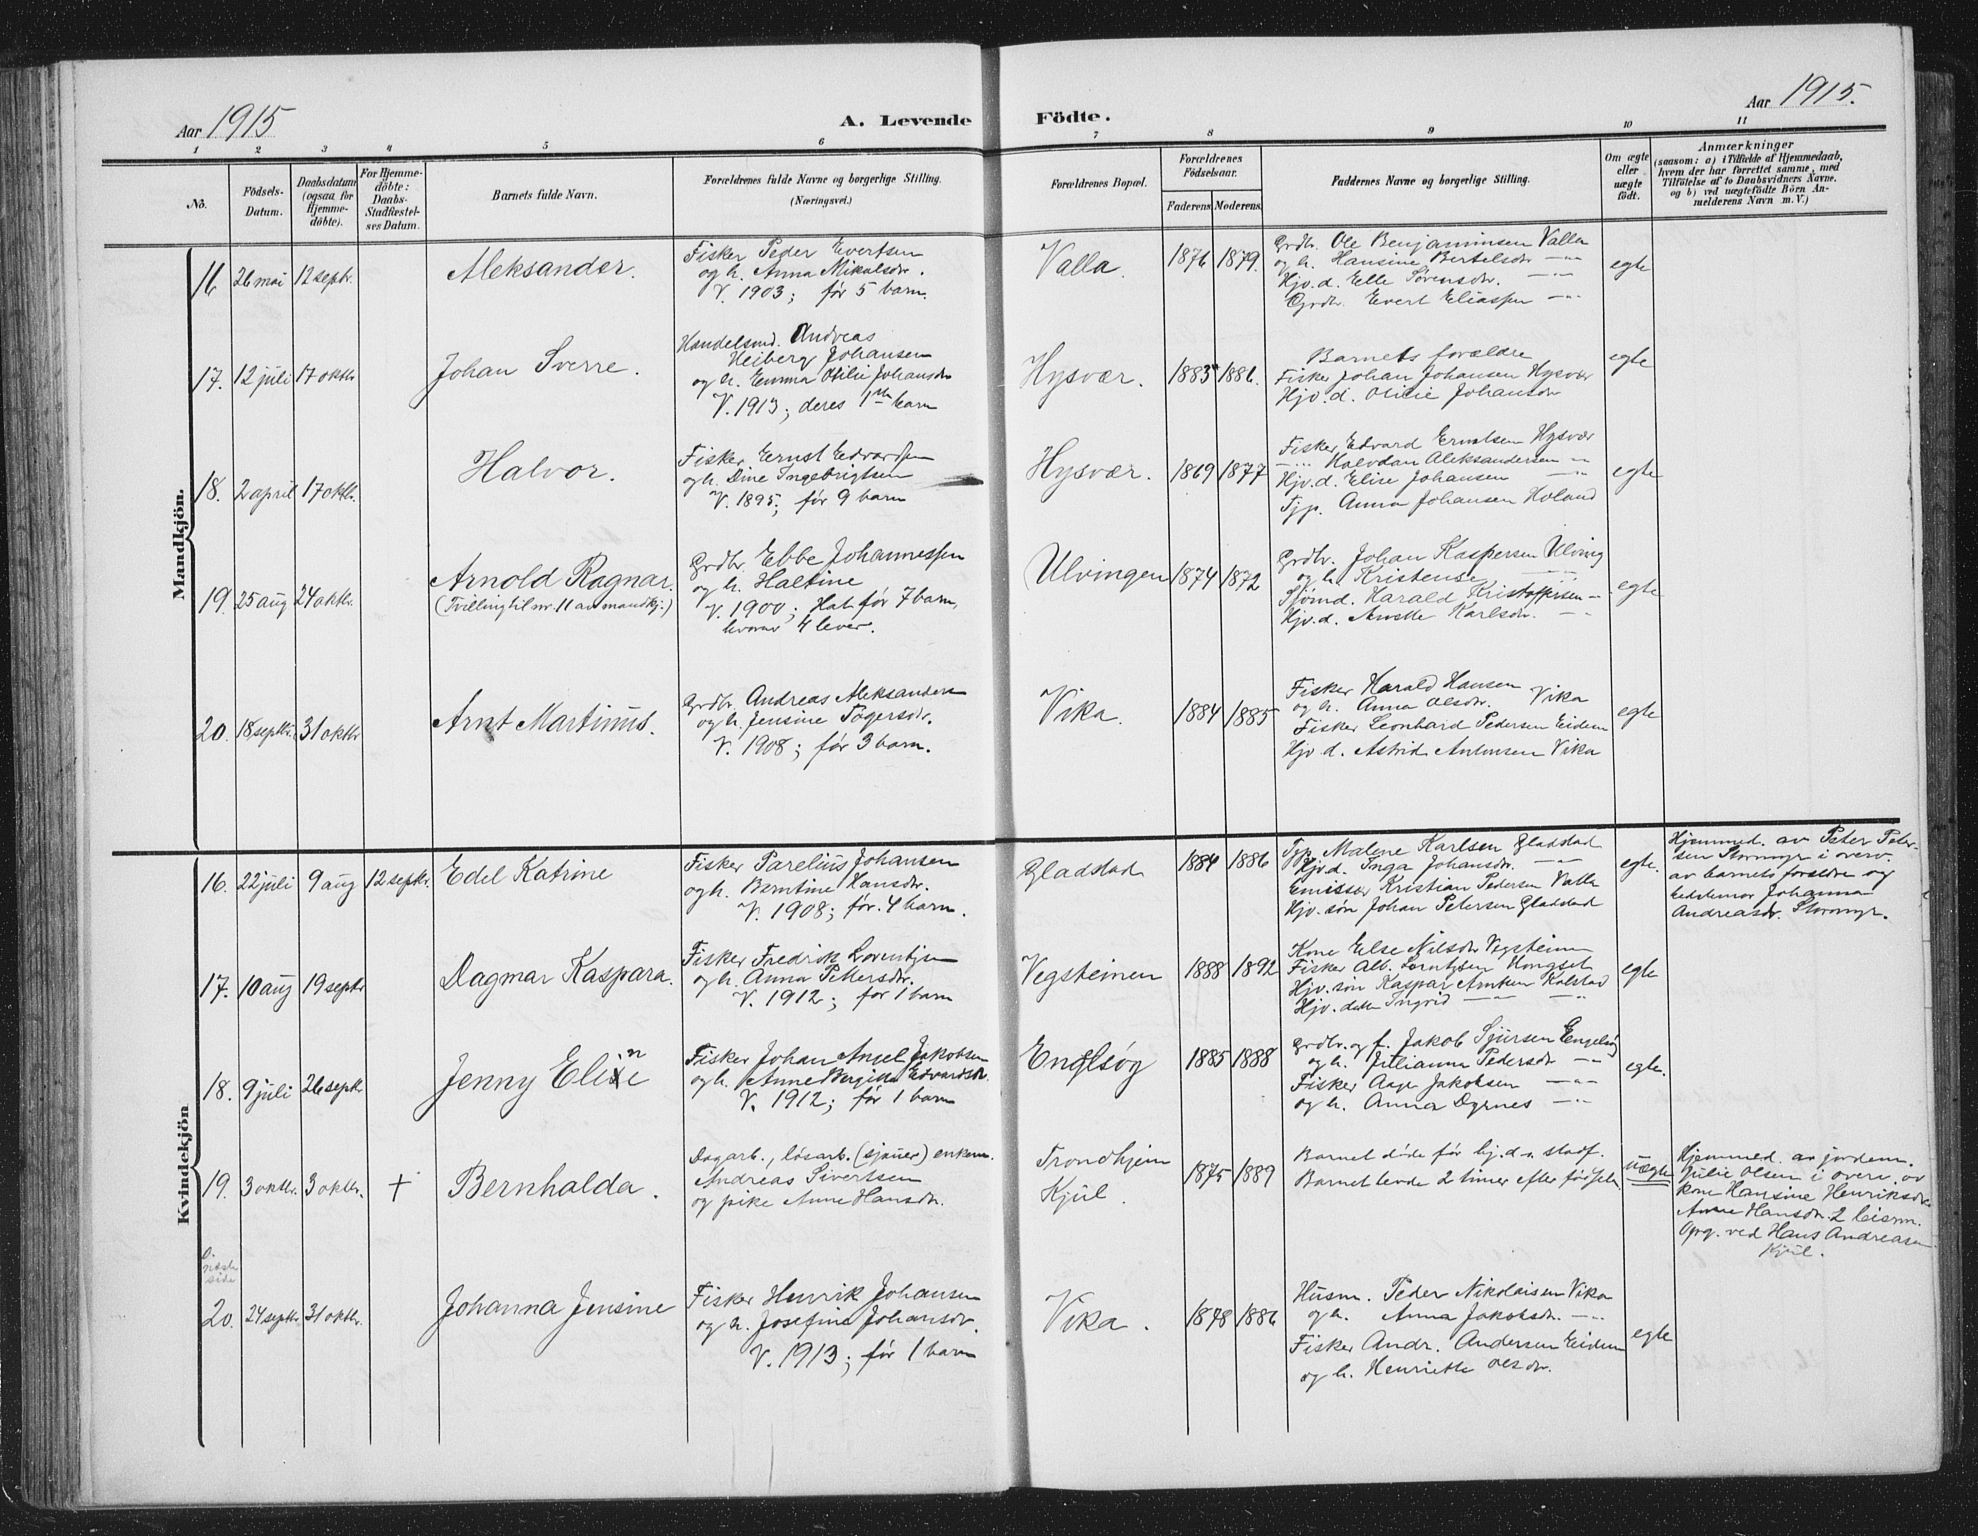 Aar 1915
A. Levende Födte.
Aar 1915.
1 2 3 4 5 6 7 8 9 10 11
No.
Födsels-
Datum.
Daabsdatum
(ogsaa for
Hjemme-
döbte).
For Hjemme-
döbte:
Daabs-
Stadfæstel-
ses Datum.
Barnets fulde Navn.
Forældrenes fulde Navne og borgerlige Stilling.
(Næringsvei.)
Forældrenes Bopæl.
Forældrenes
Födselsaar.
Faderens. Moderens.
Faddernes Navne og borgerlige Stilling.
Om ægte
eller
uægte
födt.
Anmærkninger
(saasom: a) i Tilfælde af Hjemmedaab,
hvem der har forrettet samme, med
Tilföielse af to Daabsvidners Navne.
og b) ved uægtefödte Börn An-
melderens Navn m. V.)
Mandkjön.
16 26 mai 12 septr.
Aleksander.
Fisker Peder Evertsen
og h. Anna Mikalsdr.
V. 1903; før 5 barn.
Valla.
1876 1879.
Grdbr. Ole Benjaminsen Valla
og h. Hansine Bertelsdr —"—
Hjv.d. Elle Sørensdr. —"—
Grdbr. Evert Eliassen —"—
egte
17. 12 juli 17 oktbr
Johan Sverre.
Handelsmd. Andreas
Heiberg Johansen
og h. Emma Otilie Johansdr
V. 1913; deres 1ste barn
Hysvær.
1883 1886.
Barnets forældre
Fisker Johan Johansen Hysvær
Hjv.d. Otilie Johansdr
egte
18. 2 april 17 oktbr.
Halvor.
Fisker Ernst Edvardsen
og h. Dine Ingebrigtsen
V. 1895; før 9 barn
Hysvær.
1869 1877
Fisker Edvard Ernstsen Hysvær
—"— Halvdan Aleksandersen —"—
Hjv.d. Elise Johansen —"—
Tjp. Anna Johansen Holand
egte
19. 25 aug 24 oktbr.
Arnold Ragnar.
(Tvilling til nr. 11 av mandkj.)
Grdbr Ebbe Johannessen
og h. Haltine
V. 1900; Hat før 7 barn,
hvorav 4 lever.
Ulvingen
1874 1872
Grdbr. Johan Kaspersen Ulving
og h. Kristense —"—
Sjømd. Harald Kristoffersen —"—
Hjv.d. Anette Karlsdr. —"—
egte
20. 18 septbr. 31 oktbr
Arnt Martinus.
Grdbr. Andreas Aleksandersen
og h. Jensine Togersdr.
V. 1908; før 3 barn.
Vika.
1884 1885
Fisker Harald Hansen Vika
og h. Anna Olsdr.
Fisker Leonhard Pedersen Eidem
Hjv d. Astrid Antonsen Vika
egte
Kvindekjön
16. 22 juli 9 aug 12 septbr.
Edel Katrine
Fisker Parelius Johansen
og h. Berntine Hansdr.
V. 1908; før 4 barn.
Gladstad
1884 1886
Tjp. Malene Karlsen Gladstad
Hjv.d. Inga Johansdr. —"—
Emissær Kristian Pedersen Valla
Hjv.søn Johan Petersen Gladstad
egte.
Hjemmed. av Peter Peter-
sen Stormyr i overv.
av barnets forældre og
bedstemor Johanna
Andreasdr. Stormyr.
17. 10 aug 19 septr
Dagmar Kaspara.
Fisker Fredrik Lorentsen
og h. Anna Petersdr.
V. 1912; før 1 barn
Vegsteinen
1888 1892
Kone Else Nilsdr Vegsteinen
Fisker Alb. Lorntzen Hongset
Hjv.søn Kaspar Arntsen Kolstad
Hjv.datter Ingrid —"— —"—
egte
18. 9 juli 26 septr
Jenny Eline
Fisker Johan Angel Jakobsen
og h. Anne Bergitte Edvardsdr.
V. 1912; før 1 barn
Englsøy
1885 1888
Grdbr. og f. Jakob Sjursen Engelsøy
og h. Julianna Pedersdr —"—
Fisker Aage Jakobsen —"—
og h. Anna Dyrnes —"—
egte.
19. 3 oktbr. 3 oktbr. +
Bernhalda.
Dagarb., løsarb. (sjauer) enkem.
Andreas Sivertsen
og pike Anne Hansdr.
Trondhjem
Kjul.
1875 1889
Barnet døde før hj.d.s stadf.
Barnet levde 2 timer efter fødselen
uægte
Hjemmed. av jordem.
Julie Olsen i overv. av
kone Hansine Henriksdr.
Anne Hansdr. 2 barn.
Opg. ved Hans Andreasen
Kjul.
næste
side
20. 24 septbr. 31 oktbr.
Johanna Jensine
Fisker Henrik Johansen
og h. Josefine Johansdr.
V. 1913; før 1 barn
Vika.
1878 1886
Husm. Peder Nikolaisen Vika
og h. Anna Jakobsdr. —"—
Fisker Andr. Andersen Eidem
og h. Henriette Olsdr.
egte